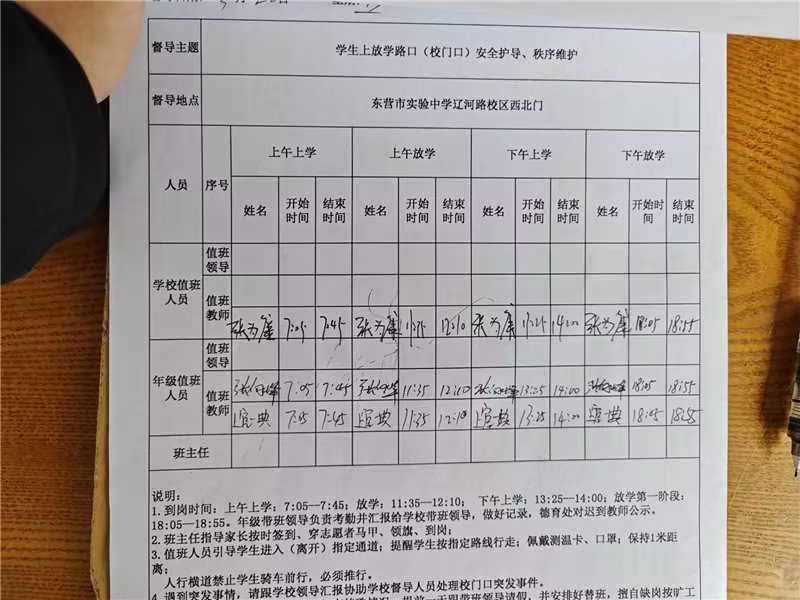 督导主题 学生上放学路口（校门口）安全护导、秩序维护
督导地点 东营市实验中学辽河路校区西北门
人员 序号 上午上学 上午放学 下午上学 下午放学
姓名 开始时间 结束时间 姓名 开始时间 结束时间 姓名 开始时间 结束时间 姓名 开始时间 结束时间
学校值班人员 值班领导
值班教师 7:05 7:45 11:35 12:10 13:25 14:00 18:05 18:55
年级值班人员 值班领导
值班教师 7:05 7:45 11:35 12:10 14:00 18:05 18:55
7:45 11:35 12:10 13:25 14:00 18:05 18:55
班主任
说明：
1.到岗时间：上午上学：7:05—7:45；放学：11:35—12:10； 下午上学：13:25—14:00；放学第一阶段：
18:05—18:55。年级带班领导负责考勤并汇报给学校带班领导，做好记录，德育处对迟到教师公示。
2.班主任指导家长按时签到、穿志愿者马甲、领旗、到岗；
3.值班人员引导学生进入（离开）指定通道；提醒学生按指定路线行走；佩戴测温卡、口罩；保持1米距
离；
人行横道禁止学生骑车前行，必须推行。
4.遇到突发事情，请跟学校领导汇报协助学校督导人员处理校门口突发事件。
提前一天跟带班领导请假，并安排好替班，擅自缺岗按旷工